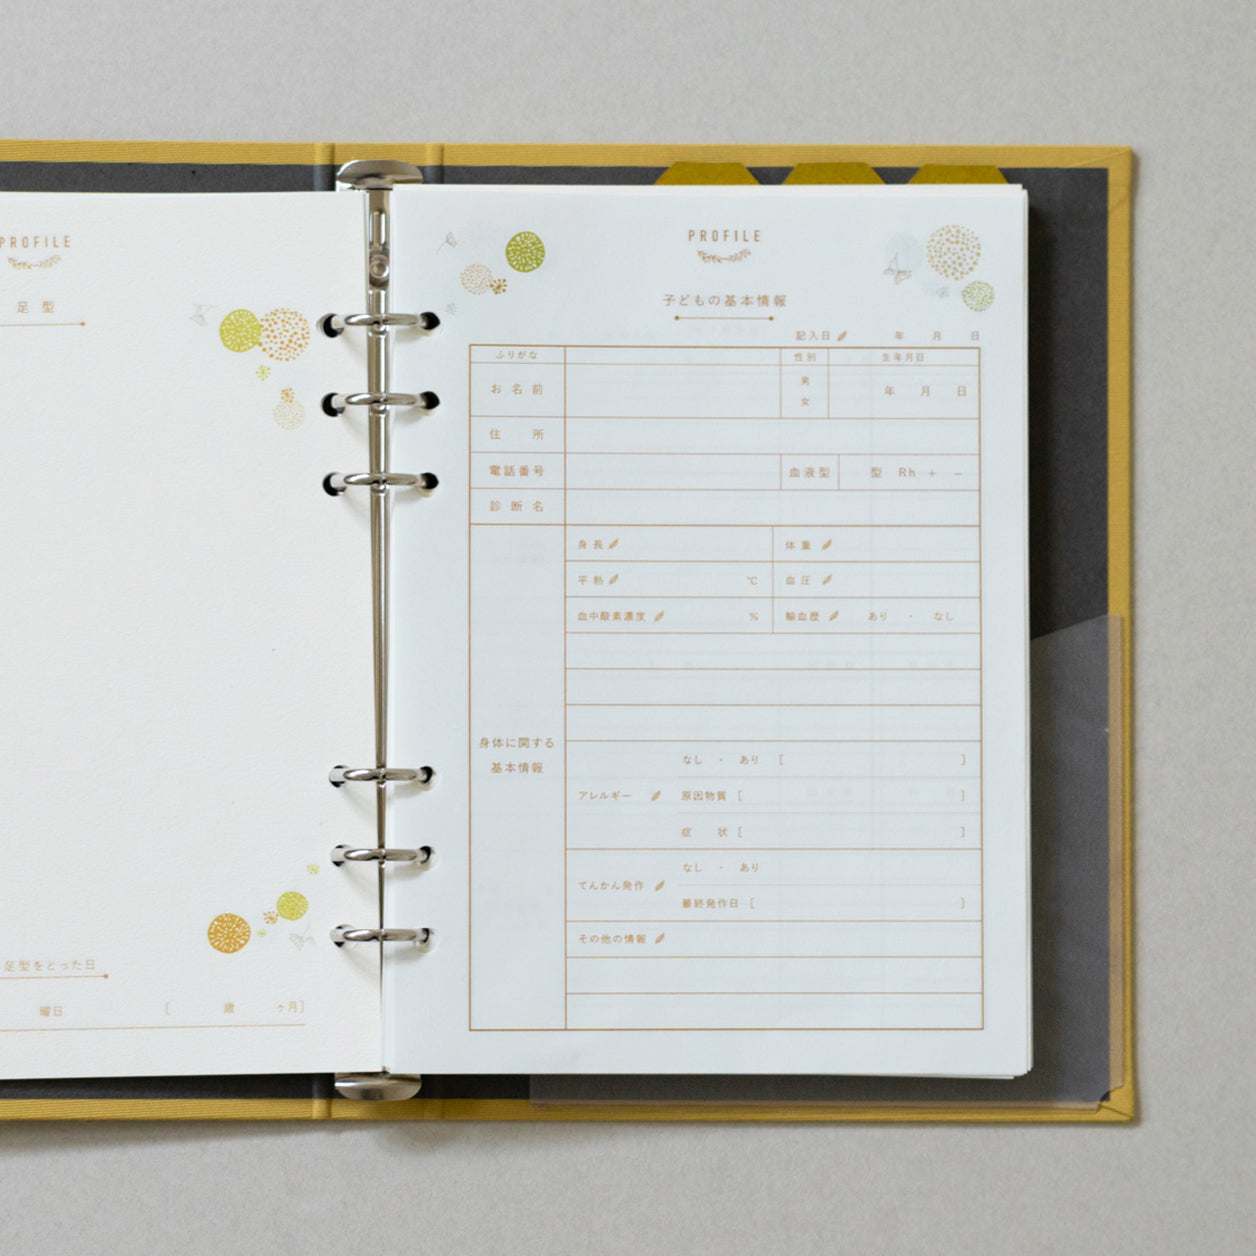 PROFILE
足型
足型をとった日
曜日 [ 歳 ヶ月]
PROFILE
子どもの基本情報
記入日 年 月 日
ふりがな 性別 生年月日
お名前 男 女 年 月 日
住所
電話番号 血液型 型 Rh + −
診断名
身体に関する
基本情報
身長 体重
平熱 ℃ 血圧
血中酸素濃度 % 輸血歴 あり ・ なし
アレルギー
なし ・ あり [ ]
原因物質 [ ]
症状 [ ]
てんかん発作
なし ・ あり
最終発作日 [ ]
その他の情報